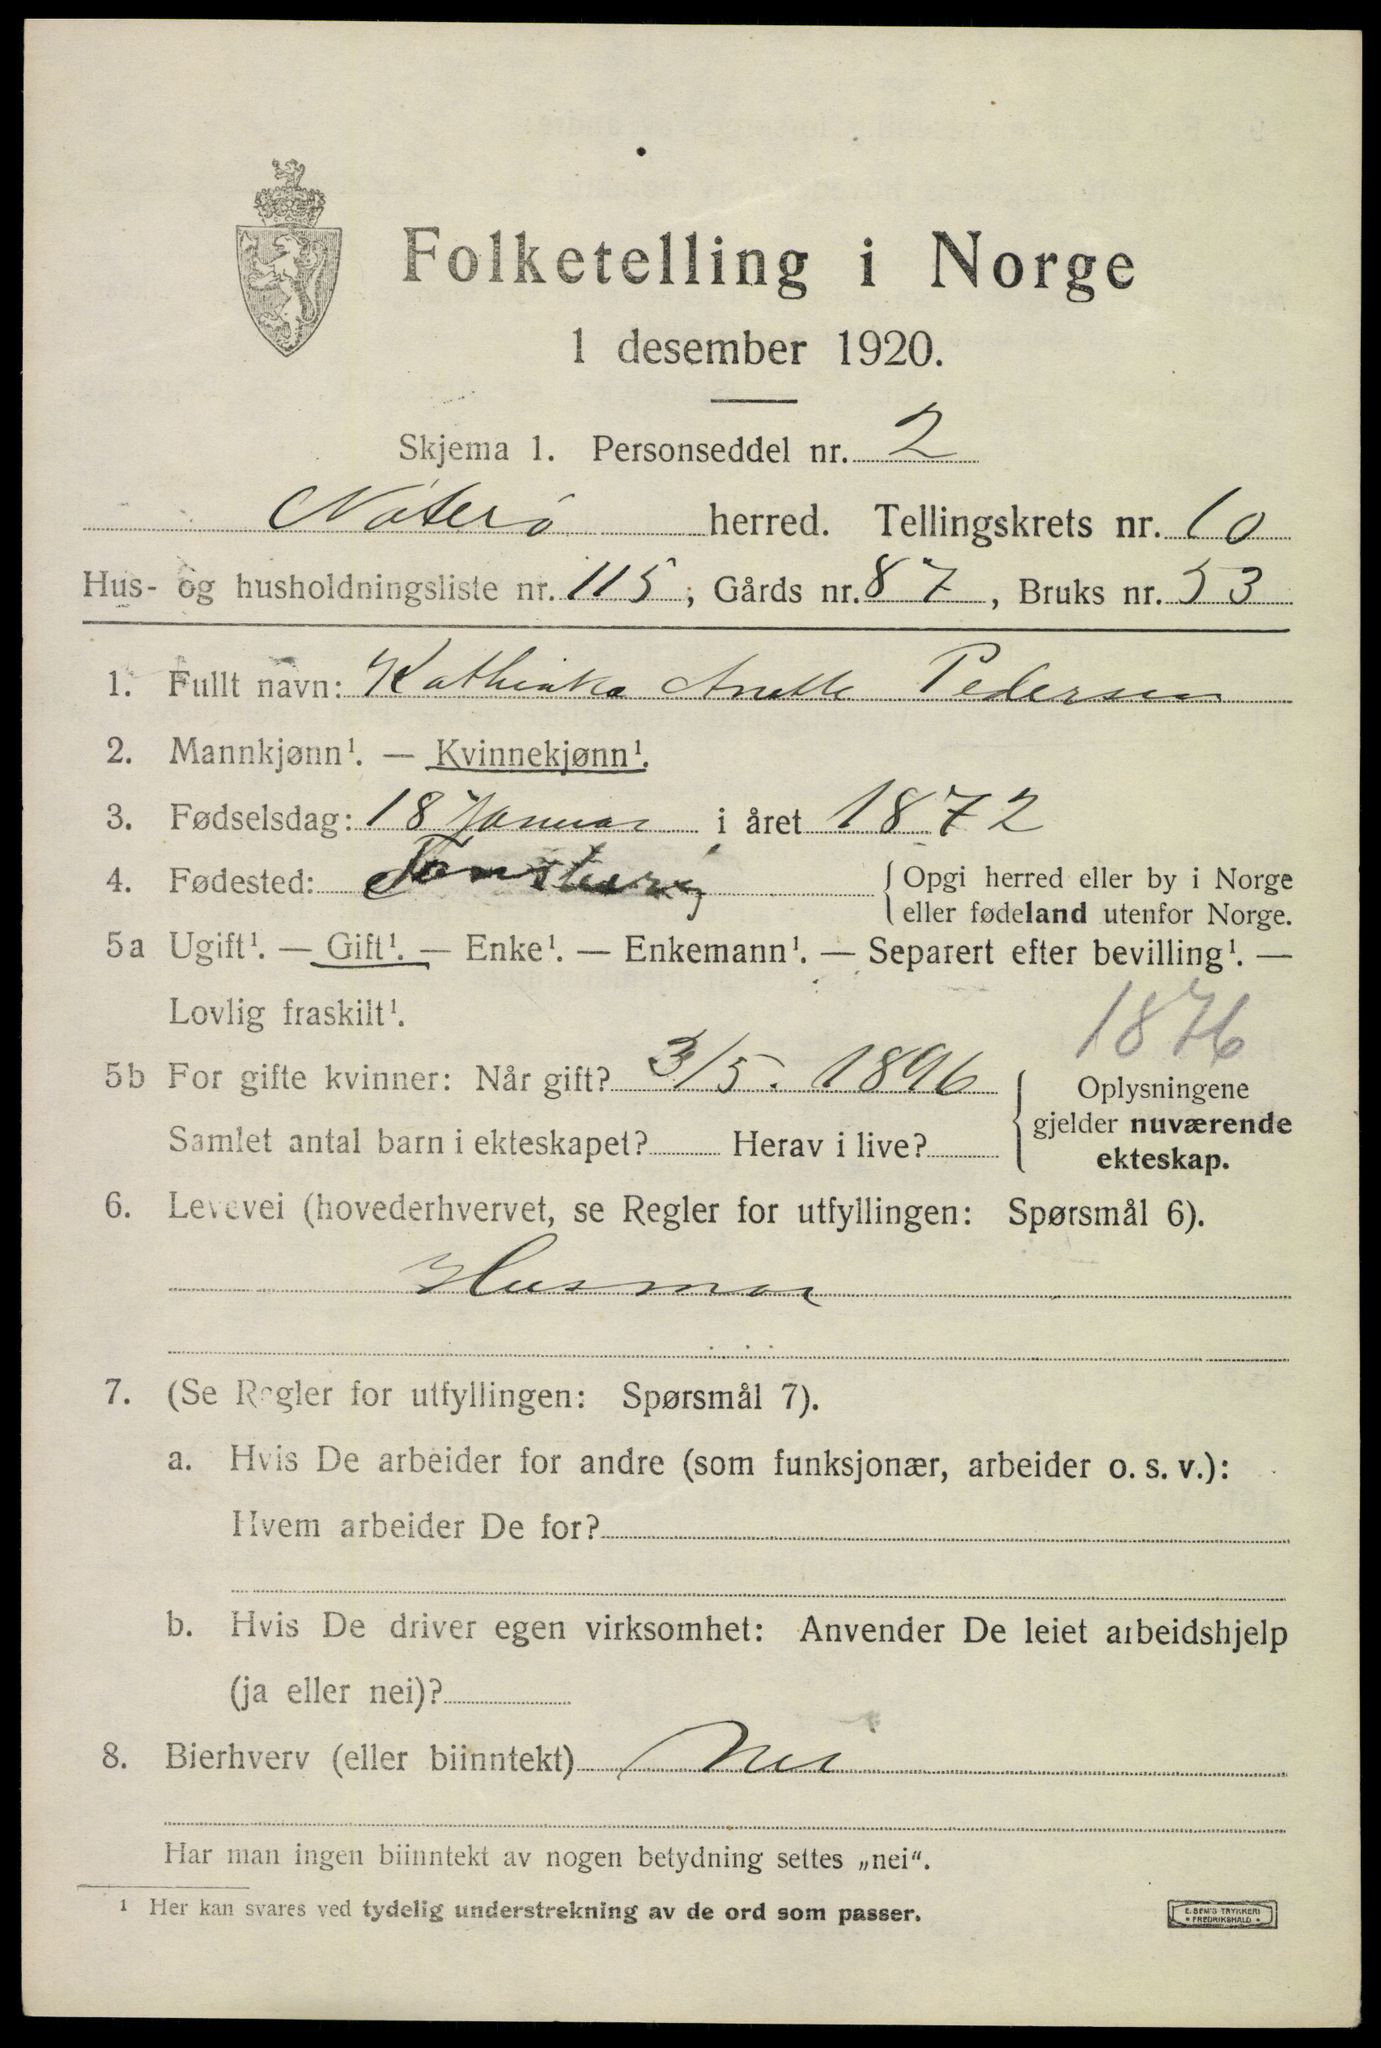 Folketelling i Norge
1 desember 1920.
Skjema 1. Personseddel nr. 2
Nøterø herred. Tellingskrets nr. 10
Hus- og husholdningsliste nr. 115; Gårds nr. 87, Bruks nr. 53
1. Fullt navn: Kathinka Anette Pedersen
2. Mannkjønn¹. — Kvinnekjønn¹.
3. Fødselsdag: 18 Januar i året 1872
4. Fødested: Tønsberg { Opgi herred eller by i Norge
eller fødeland utenfor Norge.
5a Ugift¹. — Gift¹. — Enke¹. — Enkemann¹. — Separert efter bevilling¹. —
Lovlig fraskilt¹.
1876
5b For gifte kvinner: Når gift? 3/5. 1896
Samlet antal barn i ekteskapet? Herav i live?
{ Oplysningene
gjelder nuværende
ekteskap.
6. Levevei (hovederhvervet, se Regler for utfyllingen: Spørsmål 6).
Husmor
7. (Se Regler for utfyllingen: Spørsmål 7).
a. Hvis De arbeider for andre (som funksjonær, arbeider o. s. v.):
Hvem arbeider De for?
b. Hvis De driver egen virksomhet: Anvender De leiet arbeidshjelp
(ja eller nei)?
8. Bierhverv (eller biinntekt) Nei
Har man ingen biinntekt av nogen betydning settes „nei“.
¹ Her kan svares ved tydelig understrekning av de ord som passer.
E. SEM'S TRYKKERI
• FREDRIKSHALD •